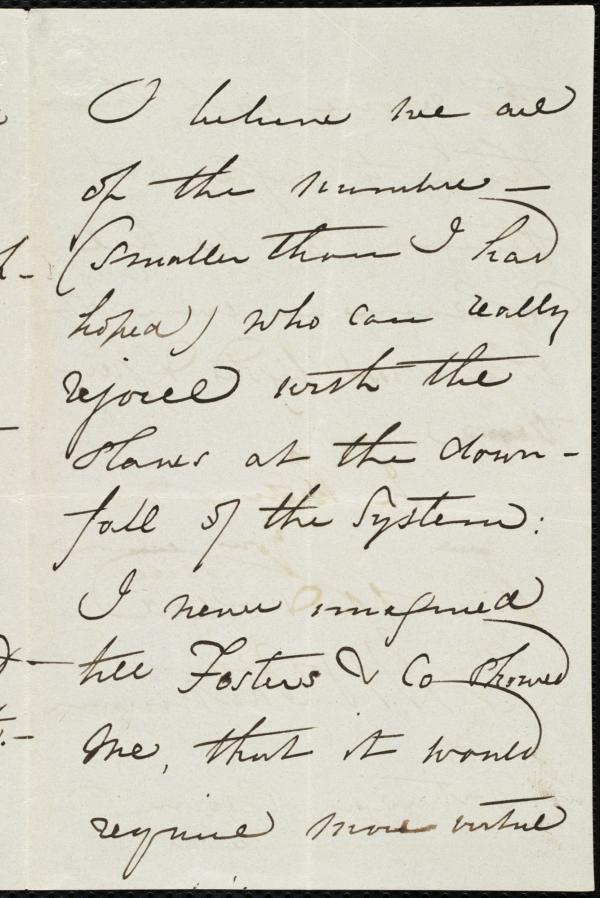 I believe we are
of the number —
(smaller than I had
hoped) who can really
rejoice with the
slaves at the down-
fall of the System:
I never imagined
till Fosters & Co showed
me, that it would
require more virtue